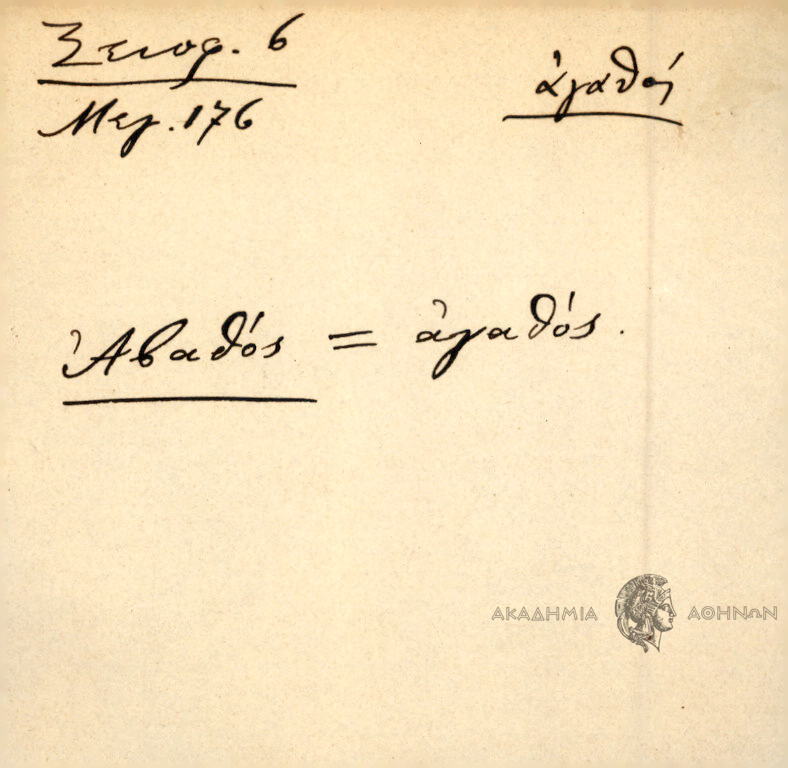 Ξενοφ. 6
Μεγ. 176
ἀγαθός
Ἀβαθός = ἀγαθός.
ΑΚΑΔΗΜΙΑ ΑΘΗΝΩΝ